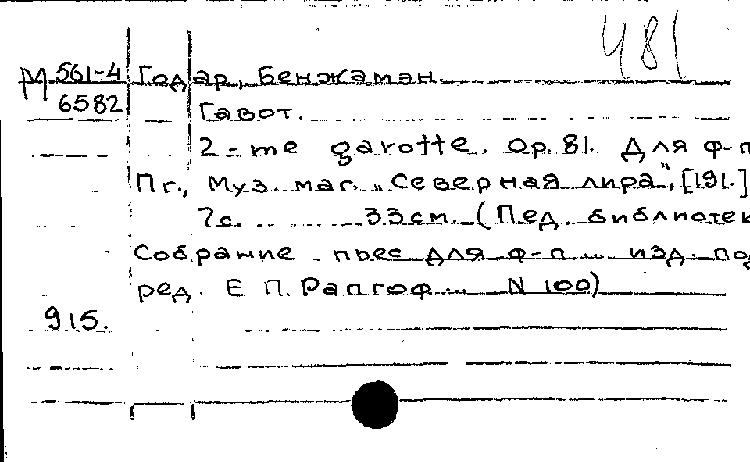 481
М 561-4 Годар, Бенжаман
6582 Гавот.
2-me gavotte. Op. 81. Для ф-п
Пг., Муз. маг. „Северная лира", [191.]
7с. 33см. (Пед. библиотек
Собрание пьес для ф-п... изд. под
ред. Е П. Рапгоф... N 100)
915.